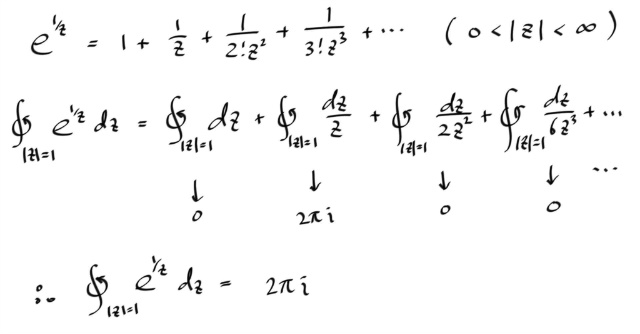 e^{1/z} = 1 + \frac{1}{z} + \frac{1}{2!z^2} + \frac{1}{3!z^3} + ⋯ ( 0 < |z| < ∞ )
∮_{|z|=1} e^{1/z} dz = ∮_{|z|=1} dz + ∮_{|z|=1} \frac{dz}{z} + ∮_{|z|=1} \frac{dz}{2z^2} + ∮_{|z|=1} \frac{dz}{6z^3} + ⋯
↓ ↓ ↓ ↓ ⋯
0 2πi 0 0
∴ ∮_{|z|=1} e^{1/z} dz = 2πi